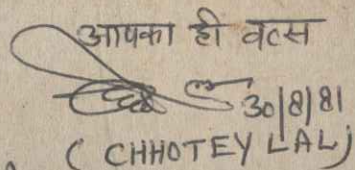 आपका ही वत्स
30/8/81
(CHHOTEY LAL)